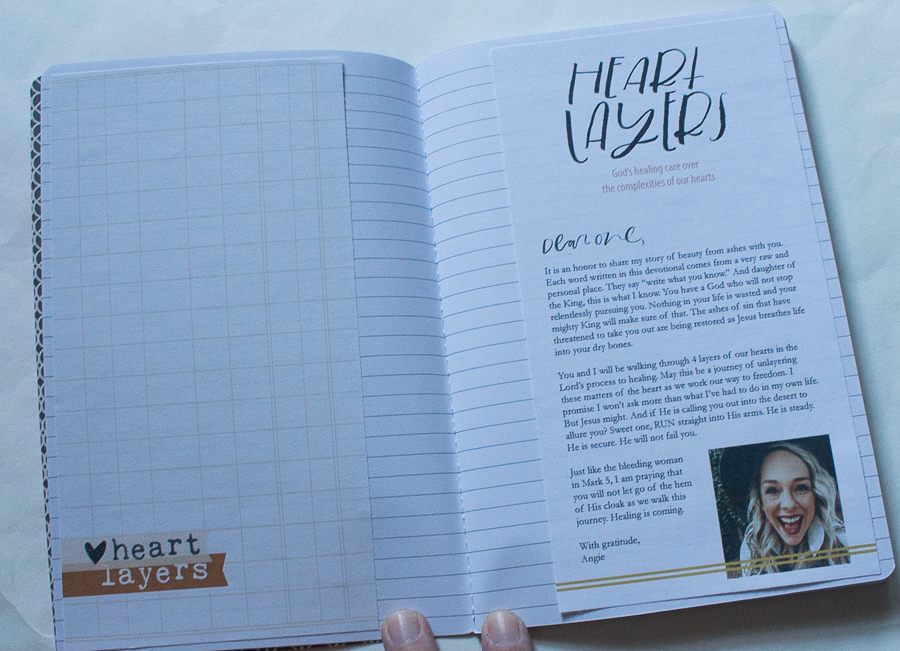 heart
layers
HEART
LAYERS
God's healing care over
the complexities of our hearts
Dear one,
It is an honor to share my story of beauty from ashes with you.
Each word written in this devotional comes from a very raw and
personal place. They say "write what you know." And daughter of
the King, this is what I know. You have a God who will not stop
relentlessly pursuing you. Nothing in your life is wasted and your
mighty King will make sure of that. The ashes of sin that have
threatened to take you out are being restored as Jesus breathes life
into your dry bones.
You and I will be walking through 4 layers of our hearts in the
Lord's process to healing. May this be a journey of unlayering
these matters of the heart as we work our way to freedom. I
promise I won't ask more than what I've had to do in my own life.
But Jesus might. And if He is calling you out into the desert to
allure you? Sweet one, RUN straight into His arms. He is steady.
He is secure. He will not fail you.
Just like the bleeding woman
in Mark 5, I am praying that
you will not let go of the hem
of His cloak as we walk this
journey. Healing is coming.
With gratitude,
Angie